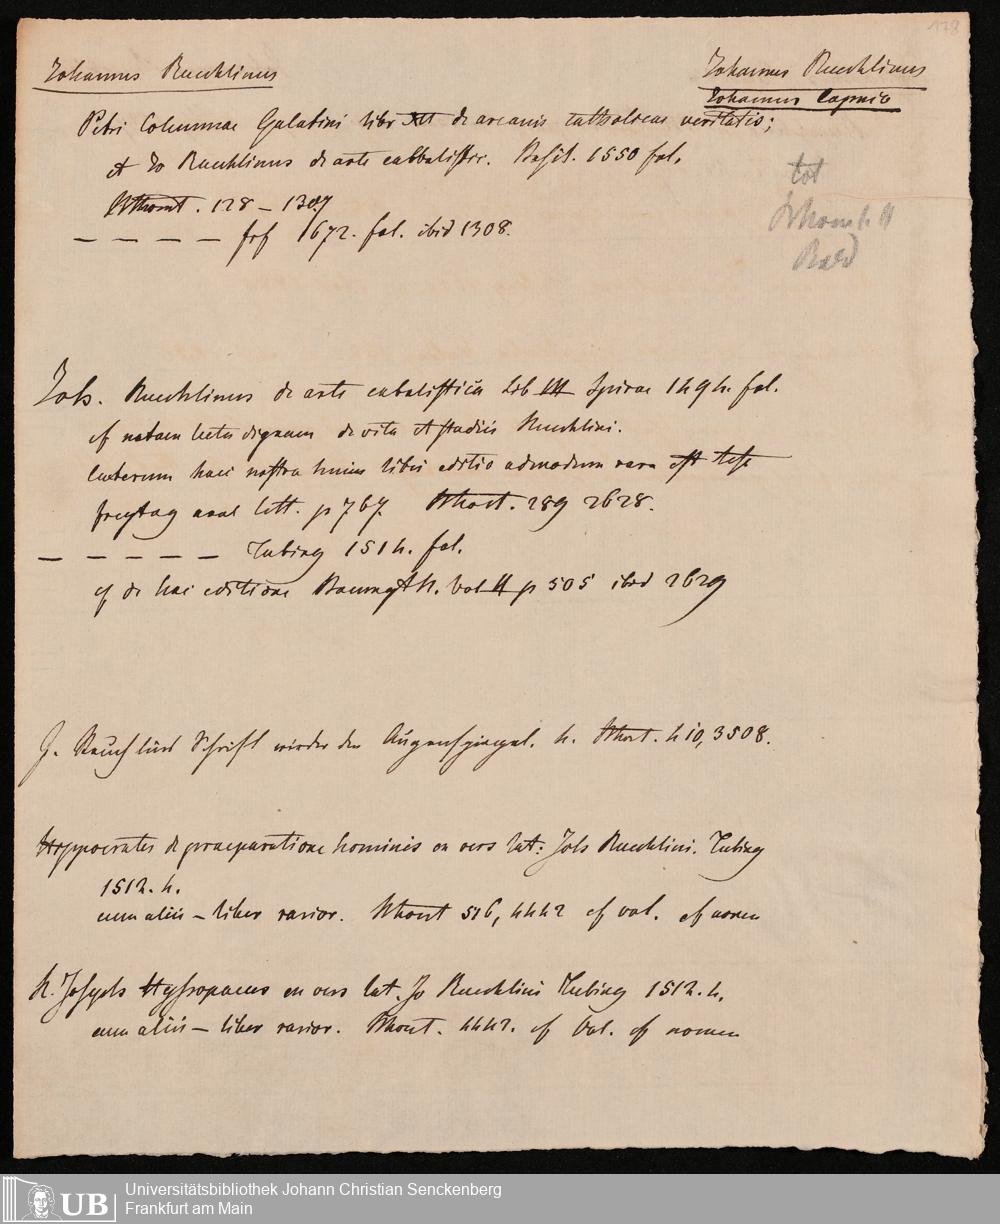 138
Johannes Reuchlinus
Johannes Reuchlinus
Johannes Capnio
Petri Columnae Galatini libr XII de arcanis catholicae veritatis;
et Jo Reuchlinus de arte cabbalistic. Basil. 1550 fol.
128 – 1307
— — — — frf 1672. fol. ibid 1308.
tot
Joh. Reuchlinus de arte cabalistica Lib III Spirae 1494. fol.
cf notam lectu dignam de vita et studiis Reuchlini.
Caeterum haec nostra hujus libri editio admodum rara est teste
Freytag anal litt. p 767. 289 2628.
— — — — — Tubing 1514. fol.
cf de hac editione Baumgt H. Vol II p 505 ibid 2629
J. Reuchlins Schrift wieder den Augenspiegel. 4. 410, 3508.
Hyppocrates de praeparatione hominis ex vers lat: Joh Reuchlini. Tubing
1512. 4.
cum aliis – liber rarior. 516, 4442 cf vol. cf nomen
R. Joseph Hyssopaeus ex vers lat. Jo Reuchlini Tubing 1512. 4.
cum aliis – liber rarior. 4442. cf Vol. cf nomen
UB
Universitätsbibliothek Johann Christian Senckenberg
Frankfurt am Main